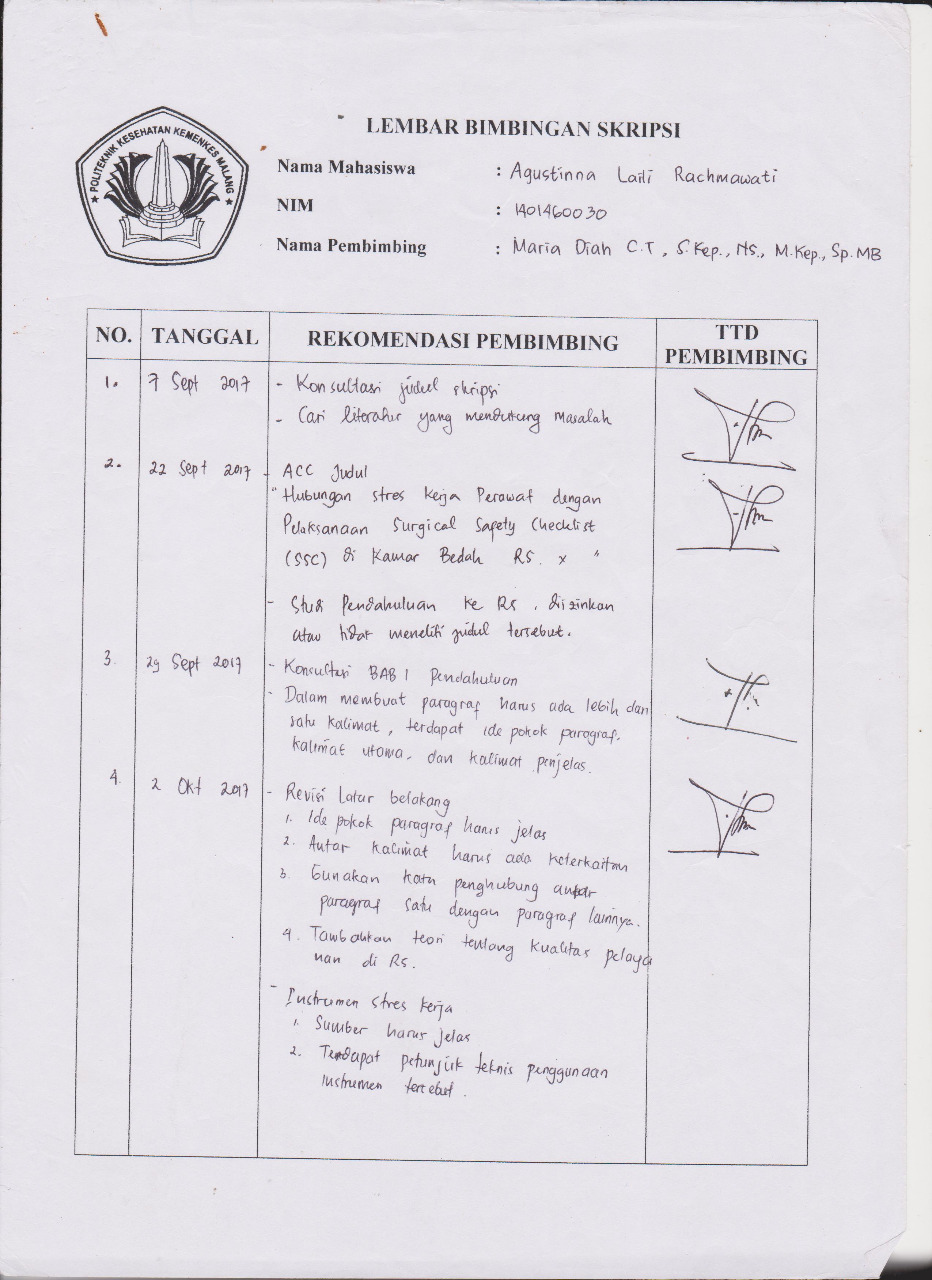 POLITEKNIK KESEHATAN KEMENKES MALANG
LEMBAR BIMBINGAN SKRIPSI
Nama Mahasiswa : Agustinna Laili Rachmawati
NIM : 1401460030
Nama Pembimbing : Maria Diah C.T, S.Kep., NS., M.Kep., Sp.MB
NO. TANGGAL REKOMENDASI PEMBIMBING TTD PEMBIMBING
1. 7 Sept 2017 - Konsultasi judul skripsi
- Cari literatur yang mendukung masalah
2. 22 Sept 2017 - ACC Judul
"Hubungan stres kerja Perawat dengan
Pelaksanaan Surgical Safety Checklist
(SSC) di Kamar Bedah RS. X "
- Studi Pendahuluan ke RS, diizinkan
atau tidak meneliti judul tersebut.
3. 29 Sept 2017 - Konsultasi BAB 1 Pendahuluan
- Dalam membuat paragraf harus ada lebih dari
satu kalimat, terdapat ide pokok paragraf,
kalimat utama, dan kalimat penjelas.
4. 2 Okt 2017 - Revisi Latar belakang
1. Ide pokok paragraf harus jelas
2. Antar kalimat harus ada keterkaitan
3. Gunakan kata penghubung antar
paragraf satu dengan paragraf lainnya.
4. Tambahkan teori tentang kualitas pelaya
nan di RS.
- Instrumen stres kerja
1. Sumber harus jelas
2. Terdapat petunjuk teknis penggunaan
instrumen tersebut.